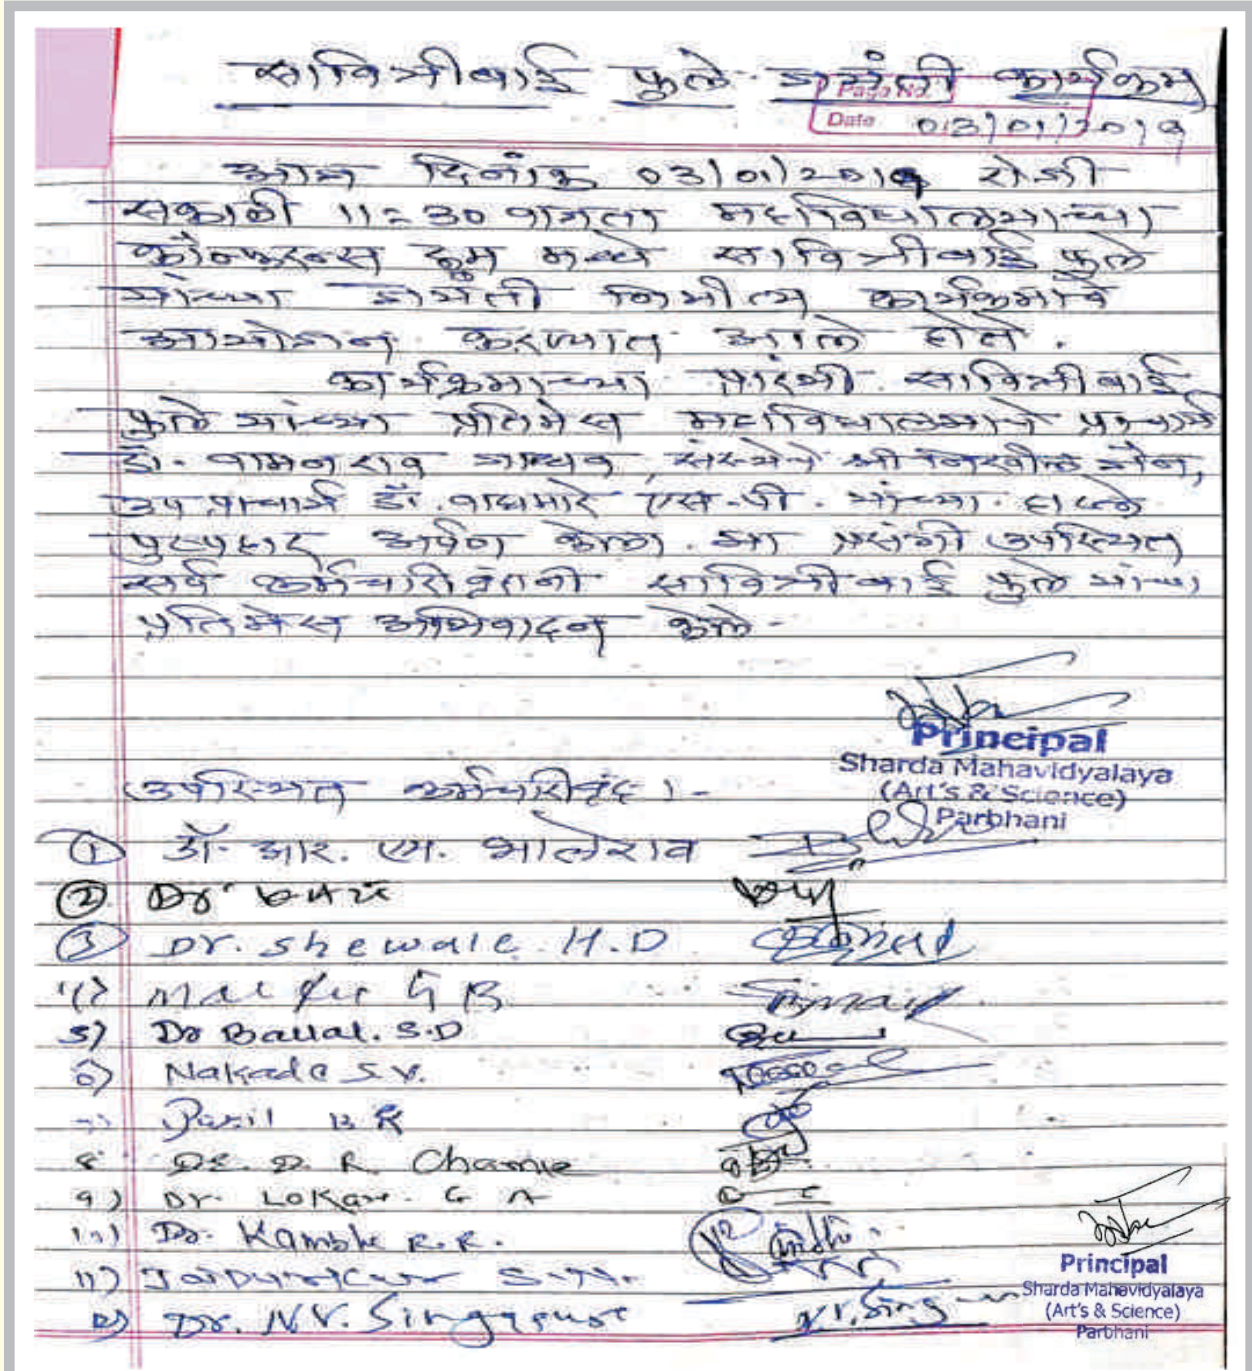 सावित्रीबाई फुले जयंती कार्यक्रम
Page No.
Date 03/01/2019
आज दिनांक 03/01/2019 रोजी
सकाळी 11=30 वाजता महाविद्यालयाच्या
कॉन्फरन्स रूम मध्ये सावित्रीबाई फुले
यांच्या जयंती निमीत्य कार्यक्रमाचे
आयोजन करण्यात आले होते.
कार्यक्रमाच्या प्रारंभी सावित्रीबाई
फुले यांच्या प्रतिमेस महाविद्यालयाचे प्राचार्य
डॉ. वामनराव जाधव, संस्थेचे श्री निखील जैन,
उपप्राचार्य डॉ. वाघमारे एस.पी. यांच्या हस्ते
पुष्पहार अर्पण केला. या प्रसंगी उपस्थित
सर्व कर्मचारीवृंदानी सावित्रीबाई फुले यांच्या
प्रतिमेस अभिवादन केले.
Principal
Sharda Mahavidyalaya
(Art's & Science)
Parbhani
उपस्थित कर्मचारीवृंद :-
① डॉ. आर. एम. भालेराव
② Dr
③ Dr. Shewale H.D
4) G B
5) Dr Ballal. S.D
6) Nakade S.V.
7) B R
8 Dr. D. R. Chame
9) Dr. G A
10) Dr. Kamble R.R.
11)
12) Dr. N.V. Singapure
N.V.Sing
Principal
Sharda Mahavidyalaya
(Art's & Science)
Parbhani